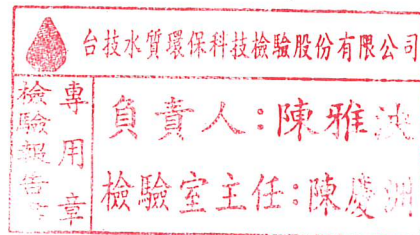 台技水質環保科技檢驗股份有限公司
檢驗報告
專用章
負責人:陳雅
檢驗室主任:陳慶